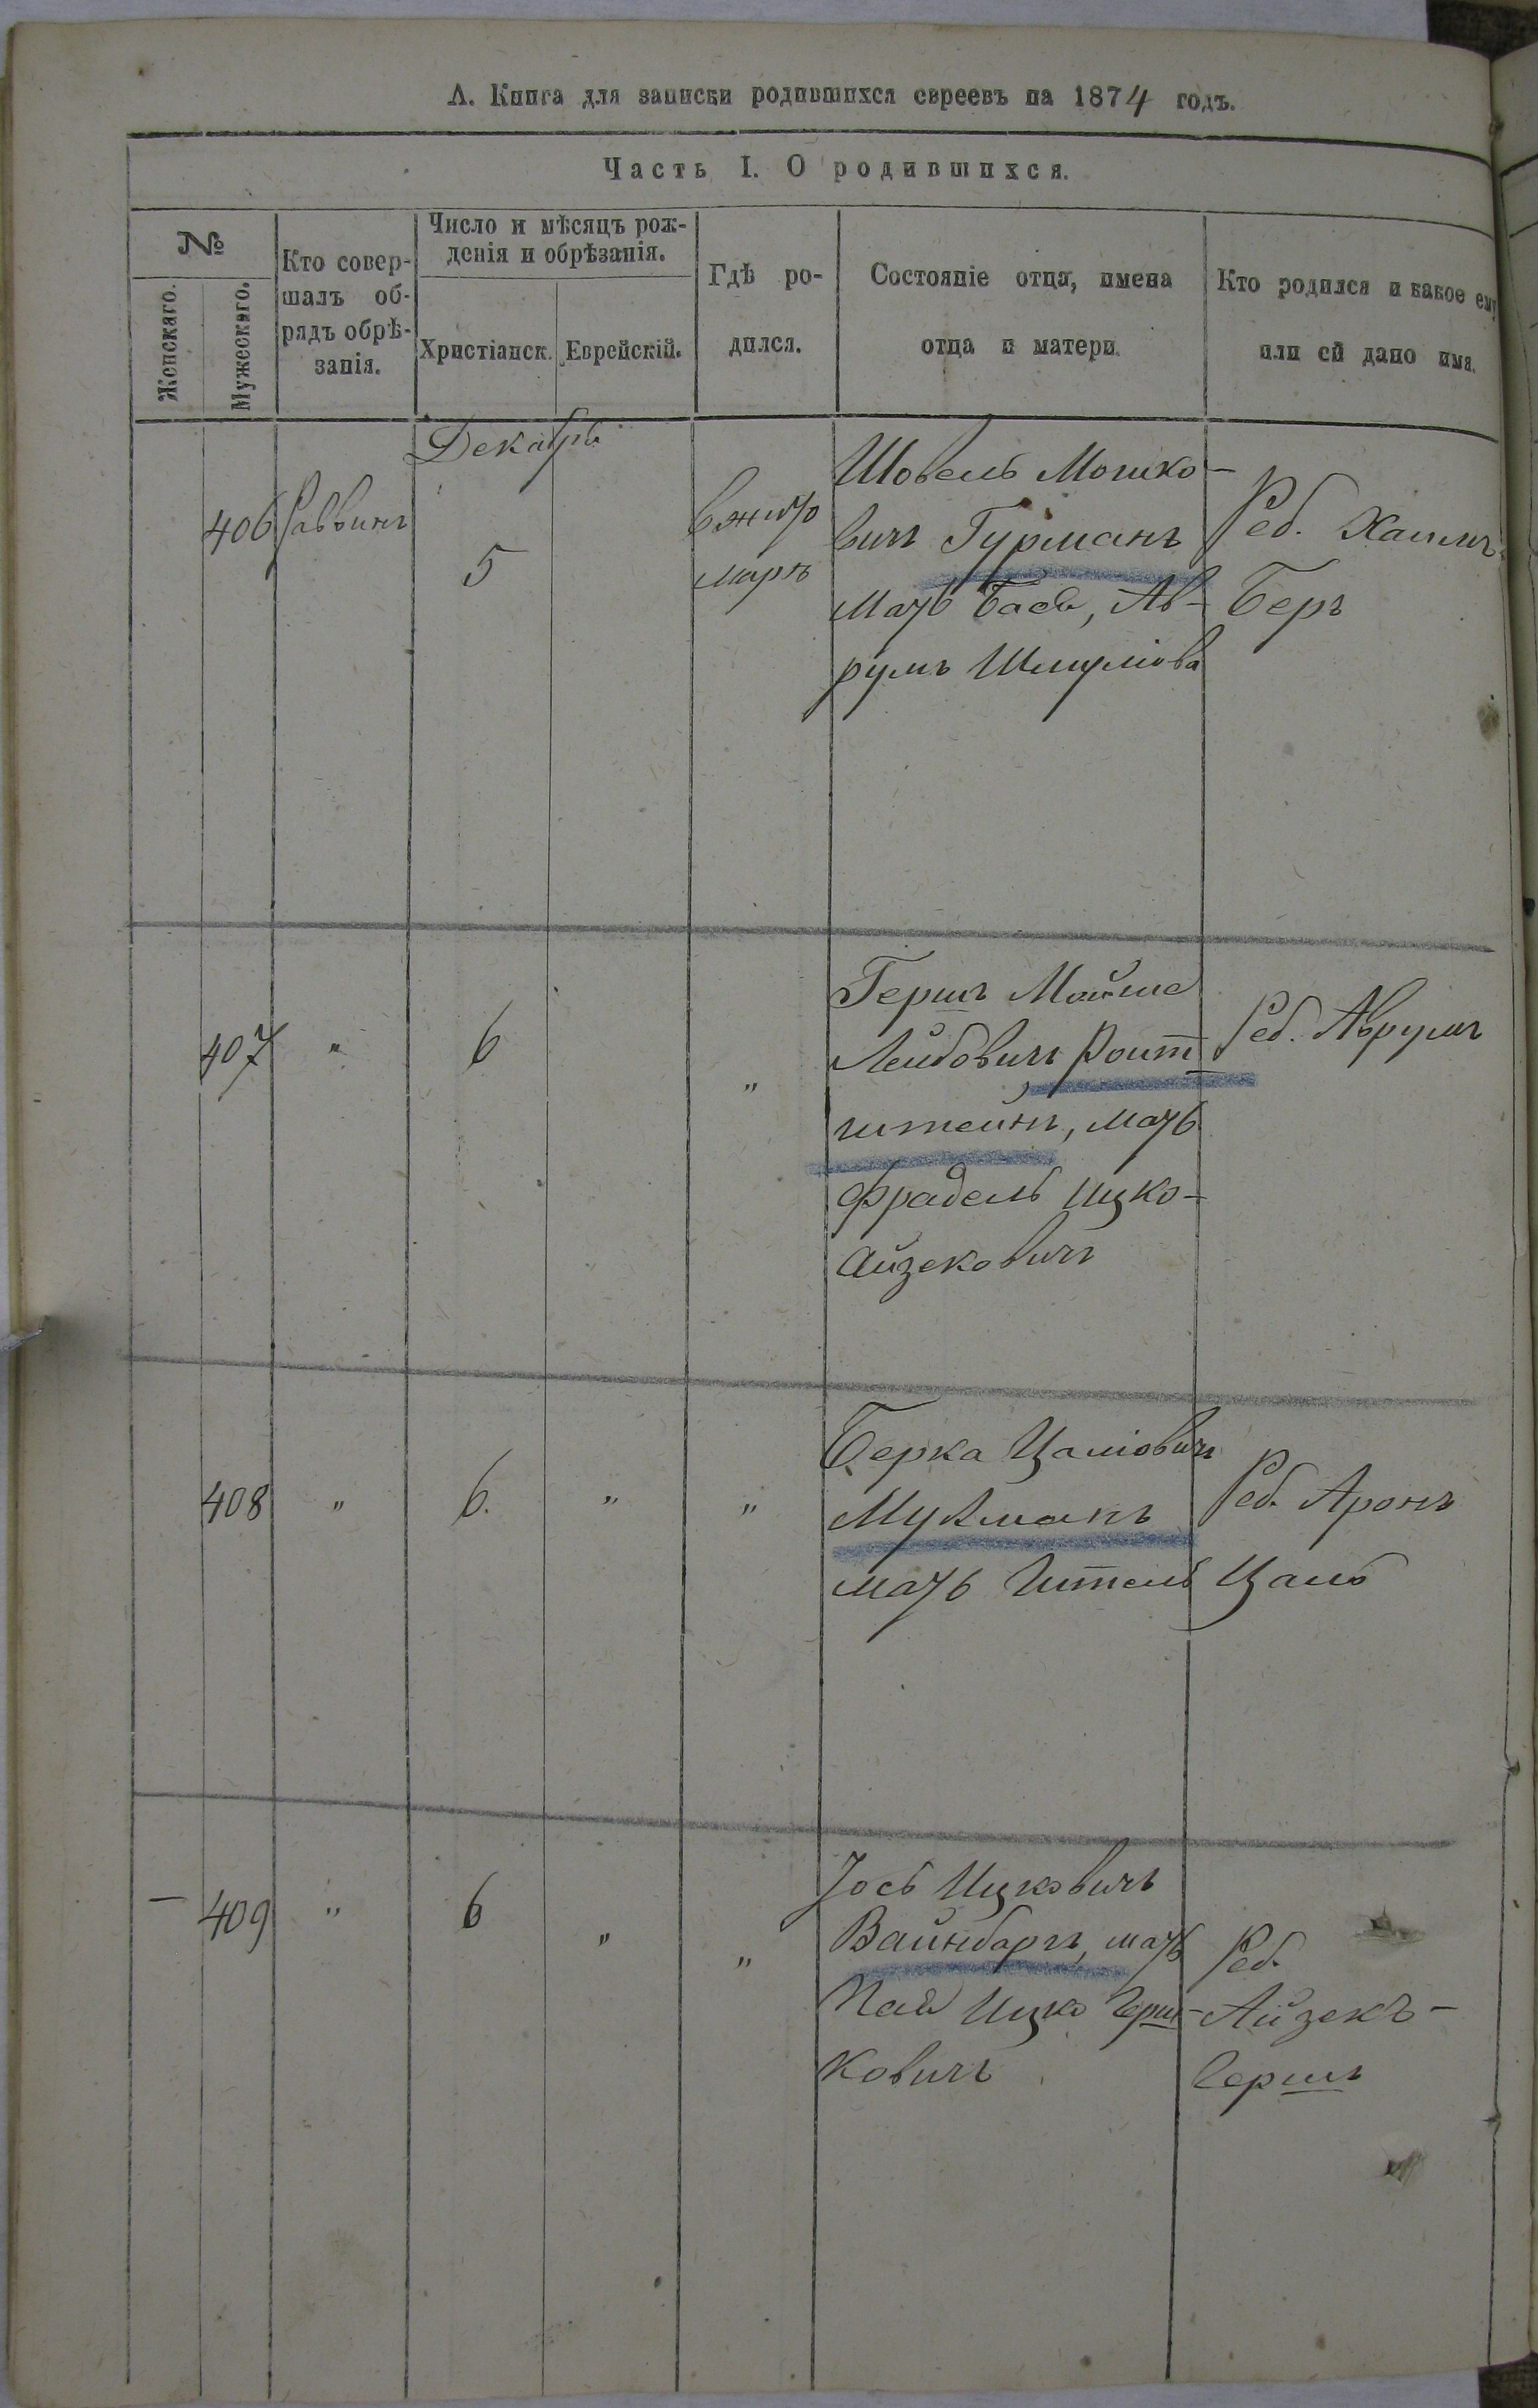 А. Книга для записки родившихся евреевъ на 1874 годъ.
Часть I. О родившихся.
№
Женскаго.
Мужескаго.
Кто совер-
шалъ об-
рядъ обрѣ-
занія.
Число и мѣсяцъ рож-
денія и обрѣзанія.
Христіанск.
Еврейскій.
Гдѣ ро-
дился.
Состояніе отца, имена
отца и матери.
Кто родился и какое ему
или ей дано имя.
Декабрь
406
Раввинъ
5
в жито
мирѣ
Шовель Мошко-
вичъ Гурманъ
мать Бася, Ав-
румъ Шмулiова
Реб. Хаимъ
Беръ
407
"
6
"
Гершъ Мойше
Лейбовичъ Роит
штейнъ, мать
Фрадель Ицко-
Айзековичъ
Реб. Аврумъ
408
"
6.
"
"
Берка Цалiовичъ
мать Ителъ
Реб. Аронъ
Цаль
—
409
"
6
"
"
Іось Ицковичъ
Вайнбаргъ, мать
Ицко Герш-
ковичъ
Реб.
Айзекъ-
Гершъ